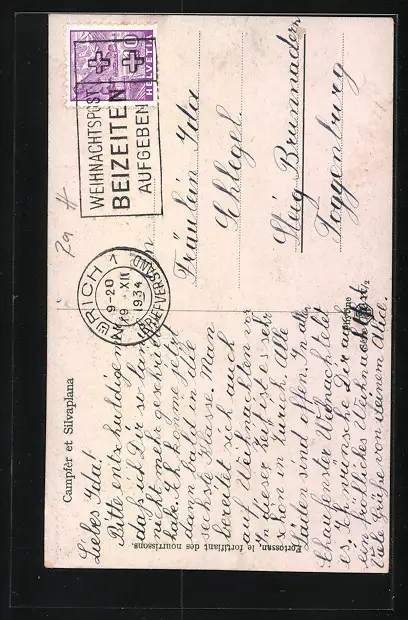 Campfèr et Silvaplana
Liebes Ida!
Bitte entschuldige mir
daß ich Dir so lange
nicht mehr geschrieben
habe. Ich komme jetzt
dann bald in die
sechste Klasse. Man
bereitet sich auch
auf Weihnachten vor
In dieser Zeit ist es sehr
schön in Zürich. Alle
Läden sind offen. In allen
Schaufenster Weihnachtelet
es. Ich wünsche Dir auch
ein fröhliches Weihnachten
Viele Grüße von Deinem Alice.
Fortossan, le fortifiant des nourrissons.
HELVETIA
WEIHNACHTSPOST
BEIZEITEN
AUFGEBEN
ZÜRICH 1
9-20
19 XII
1934
BRIEFVERSAND
Fräulein Ida
Schlegel
Steig Brunnadern
Toggenburg